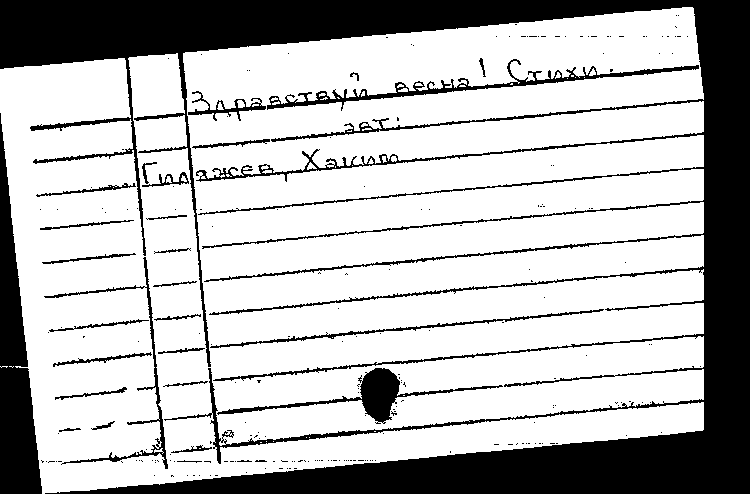 Здравствуй весна! Стихи.
авт:
Гиляжев, Хаким